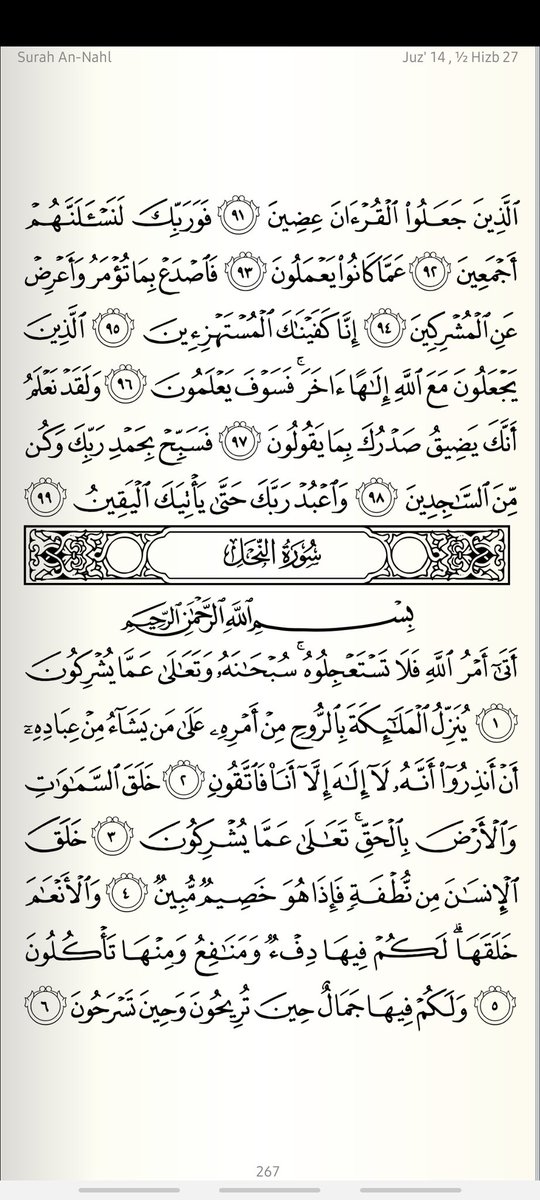 Surah An-Nahl Juz' 14 , ½ Hizb 27
ٱلَّذِينَ جَعَلُوا۟ ٱلْقُرْءَانَ عِضِينَ ٩١ فَوَرَبِّكَ لَنَسْـَٔلَنَّهُمْ
أَجْمَعِينَ ٩٢ عَمَّا كَانُوا۟ يَعْمَلُونَ ٩٣ فَٱصْدَعْ بِمَا تُؤْمَرُ وَأَعْرِضْ
عَنِ ٱلْمُشْرِكِينَ ٩٤ إِنَّا كَفَيْنَـٰكَ ٱلْمُسْتَهْزِءِينَ ٩٥ ٱلَّذِينَ
يَجْعَلُونَ مَعَ ٱللَّهِ إِلَـٰهًا ءَاخَرَ ۚ فَسَوْفَ يَعْلَمُونَ ٩٦ وَلَقَدْ نَعْلَمُ
أَنَّكَ يَضِيقُ صَدْرُكَ بِمَا يَقُولُونَ ٩٧ فَسَبِّحْ بِحَمْدِ رَبِّكَ وَكُن
مِّنَ ٱلسَّـٰجِدِينَ ٩٨ وَٱعْبُدْ رَبَّكَ حَتَّىٰ يَأْتِيَكَ ٱلْيَقِينُ ٩٩
سُورَةُ النَّحْلِ
بِسْمِ ٱللَّهِ ٱلرَّحْمَـٰنِ ٱلرَّحِيمِ
أَتَىٰٓ أَمْرُ ٱللَّهِ فَلَا تَسْتَعْجِلُوهُ ۚ سُبْحَـٰنَهُۥ وَتَعَـٰلَىٰ عَمَّا يُشْرِكُونَ
١ يُنَزِّلُ ٱلْمَلَـٰٓئِكَةَ بِٱلرُّوحِ مِنْ أَمْرِهِۦ عَلَىٰ مَن يَشَآءُ مِنْ عِبَادِهِۦٓ
أَنْ أَنذِرُوٓا۟ أَنَّهُۥ لَآ إِلَـٰهَ إِلَّآ أَنَا۠ فَٱتَّقُونِ ٢ خَلَقَ ٱلسَّمَـٰوَٰتِ
وَٱلْأَرْضَ بِٱلْحَقِّ ۚ تَعَـٰلَىٰ عَمَّا يُشْرِكُونَ ٣ خَلَقَ
ٱلْإِنسَـٰنَ مِن نُّطْفَةٍ فَإِذَا هُوَ خَصِيمٌ مُّبِينٌ ٤ وَٱلْأَنْعَـٰمَ
خَلَقَهَا ۗ لَكُمْ فِيهَا دِفْءٌ وَمَنَـٰفِعُ وَمِنْهَا تَأْكُلُونَ
٥ وَلَكُمْ فِيهَا جَمَالٌ حِينَ تُرِيحُونَ وَحِينَ تَسْرَحُونَ ٦
267